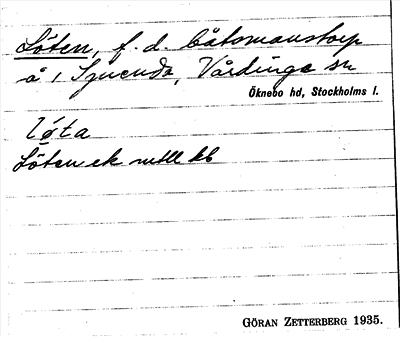 Löten, f. d. båtsmanstorp
å 1 Sjuenda, Vårdinge sn
Öknebo hd, Stockholms l.
løta
Löten ek mtll kb
GÖRAN ZETTERBERG 1935.